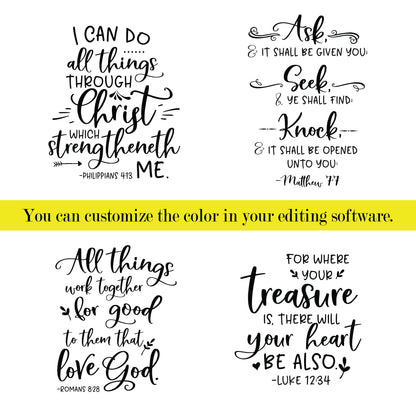 I CAN DO
all things
THROUGH
Christ
WHICH
strengtheneth
ME.
-PHILIPPIANS 4:13
Ask,
& IT SHALL BE GIVEN YOU;
Seek,
& YE SHALL FIND;
Knock,
& IT SHALL BE OPENED
UNTO YOU;
-Matthew 7:7
You can customize the color in your editing software.
All things
work together
for good
to them that
love God.
-ROMANS 8:28
FOR WHERE
YOUR
treasure
IS, THERE WILL
your heart
BE ALSO.
-LUKE 12:34